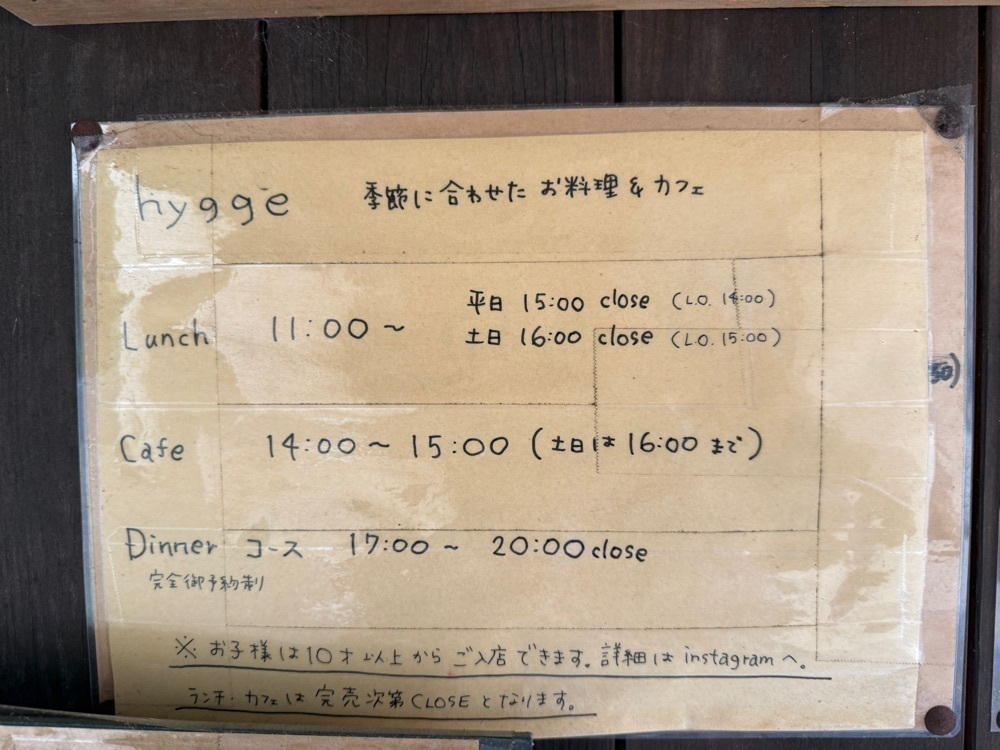 hygge 季節に合わせた お料理 & カフェ
Lunch 11:00 ~ 平日 15:00 close (L.O. 14:00)
土日 16:00 close (L.O. 15:00)
Cafe 14:00 ~ 15:00 (土日は 16:00 まで)
Dinner コース 17:00 ~ 20:00 close
完全御予約制
※ お子様は10才以上からご入店できます。詳細は instagramへ。
ランチ・カフェは完売次第CLOSEとなります。